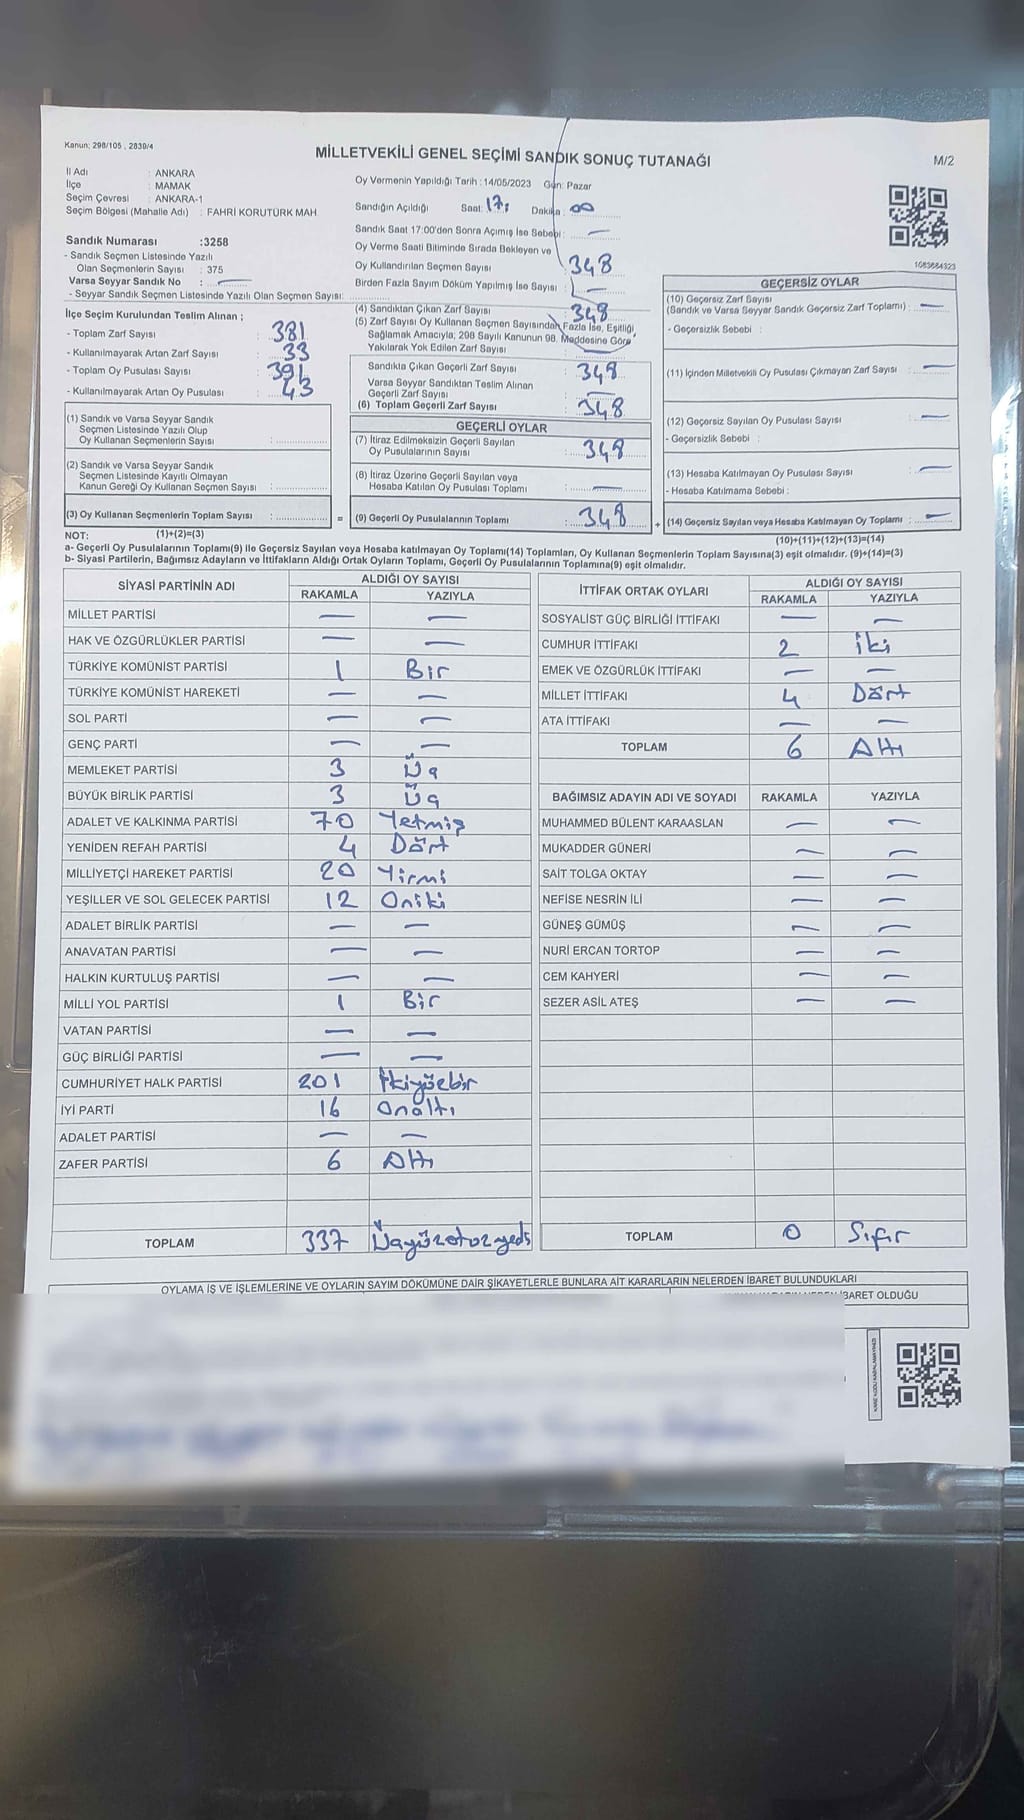 Kanun; 298/105 , 2839/4
MİLLETVEKİLİ GENEL SEÇİMİ SANDIK SONUÇ TUTANAĞI
M/2
İl Adı : ANKARA
İlçe : MAMAK
Seçim Çevresi : ANKARA-1
Seçim Bölgesi (Mahalle Adı) : FAHRİ KORUTÜRK MAH
Sandık Numarası :3258
- Sandık Seçmen Listesinde Yazılı
Olan Seçmenlerin Sayısı : 375
Varsa Seyyar Sandık No : —
- Seyyar Sandık Seçmen Listesinde Yazılı Olan Seçmen Sayısı:
İlçe Seçim Kurulundan Teslim Alınan ;
- Toplam Zarf Sayısı : 381
- Kullanılmayarak Artan Zarf Sayısı : 33
- Toplam Oy Pusulası Sayısı : 391
- Kullanılmayarak Artan Oy Pusulası : 43
(1) Sandık ve Varsa Seyyar Sandık
Seçmen Listesinde Yazılı Olup
Oy Kullanan Seçmenlerin Sayısı :
(2) Sandık ve Varsa Seyyar Sandık
Seçmen Listesinde Kayıtlı Olmayan
Kanun Gereği Oy Kullanan Seçmen Sayısı :
(3) Oy Kullanan Seçmenlerin Toplam Sayısı : =
Oy Vermenin Yapıldığı Tarih : 14/05/2023 Gün: Pazar
Sandığın Açıldığı Saat: 17: Dakika : 00
Sandık Saat 17:00'den Sonra Açımış İse Sebebi : —
Oy Verme Saati Bitiminde Sırada Bekleyen ve
Oy Kullandırılan Seçmen Sayısı : 348
Birden Fazla Sayım Döküm Yapılmış İse Sayısı : —
(4) Sandıktan Çıkan Zarf Sayısı : 348
(5) Zarf Sayısı Oy Kullanan Seçmen Sayısından Fazla İse, Eşitliği
Sağlamak Amacıyla; 298 Sayılı Kanunun 98. Maddesine Göre
Yakılarak Yok Edilen Zarf Sayısı
Sandıkta Çıkan Geçerli Zarf Sayısı : 348
Varsa Seyyar Sandıktan Teslim Alınan
Geçerli Zarf Sayısı : —
(6) Toplam Geçerli Zarf Sayısı : 348
GEÇERLİ OYLAR
(7) İtiraz Edilmeksizin Geçerli Sayılan
Oy Pusulalarının Sayısı : 348
(8) İtiraz Üzerine Geçerli Sayılan veya
Hesaba Katılan Oy Pusulası Toplamı : —
(9) Geçerli Oy Pusulalarının Toplamı : 348 +
1083684323
GEÇERSİZ OYLAR
(10) Geçersiz Zarf Sayısı
(Sandık ve Varsa Seyyar Sandık Geçersiz Zarf Toplamı) : —
- Geçersizlik Sebebi :
(11) İçinden Milletvekili Oy Pusulası Çıkmayan Zarf Sayısı : —
(12) Geçersiz Sayılan Oy Pusulası Sayısı : —
- Geçersizlik Sebebi :
(13) Hesaba Katılmayan Oy Pusulası Sayısı : —
- Hesaba Katılmama Sebebi :
(14) Geçersiz Sayılan veya Hesaba Katılmayan Oy Toplamı : —
NOT: (1)+(2)=(3)
(10)+(11)+(12)+(13)=(14)
a- Geçerli Oy Pusulalarının Toplamı(9) ile Geçersiz Sayılan veya Hesaba katılmayan Oy Toplamı(14) Toplamları, Oy Kullanan Seçmenlerin Toplam Sayısına(3) eşit olmalıdır. (9)+(14)=(3)
b- Siyasi Partilerin, Bağımsız Adayların ve İttifakların Aldığı Ortak Oyların Toplamı, Geçerli Oy Pusulalarının Toplamına(9) eşit olmalıdır.
SİYASİ PARTİNİN ADI ALDIĞI OY SAYISI
RAKAMLA YAZIYLA
MİLLET PARTİSİ — —
HAK VE ÖZGÜRLÜKLER PARTİSİ — —
TÜRKİYE KOMÜNİST PARTİSİ 1 Bir
TÜRKİYE KOMÜNİST HAREKETİ — —
SOL PARTİ — —
GENÇ PARTİ — —
MEMLEKET PARTİSİ 3 Üç
BÜYÜK BİRLİK PARTİSİ 3 Üç
ADALET VE KALKINMA PARTİSİ 70 Yetmiş
YENİDEN REFAH PARTİSİ 4 Dört
MİLLİYETÇİ HAREKET PARTİSİ 20 Yirmi
YEŞİLLER VE SOL GELECEK PARTİSİ 12 Oniki
ADALET BİRLİK PARTİSİ — —
ANAVATAN PARTİSİ — —
HALKIN KURTULUŞ PARTİSİ — —
MİLLİ YOL PARTİSİ 1 Bir
VATAN PARTİSİ — —
GÜÇ BİRLİĞİ PARTİSİ — —
CUMHURİYET HALK PARTİSİ 201 İkiyüzbir
İYİ PARTİ 16 Onaltı
ADALET PARTİSİ — —
ZAFER PARTİSİ 6 Altı
TOPLAM 337 Üçyüzotuzyedi
İTTİFAK ORTAK OYLARI ALDIĞI OY SAYISI
RAKAMLA YAZIYLA
SOSYALİST GÜÇ BİRLİĞİ İTTİFAKI — —
CUMHUR İTTİFAKI 2 İki
EMEK VE ÖZGÜRLÜK İTTİFAKI — —
MİLLET İTTİFAKI 4 Dört
ATA İTTİFAKI — —
TOPLAM 6 Altı
BAĞIMSIZ ADAYIN ADI VE SOYADI RAKAMLA YAZIYLA
MUHAMMED BÜLENT KARAASLAN — —
MUKADDER GÜNERİ — —
SAİT TOLGA OKTAY — —
NEFİSE NESRİN İLİ — —
GÜNEŞ GÜMÜŞ — —
NURİ ERCAN TORTOP — —
CEM KAHYERİ — —
SEZER ASİL ATEŞ — —
TOPLAM 0 Sıfır
OYLAMA İŞ VE İŞLEMLERİNE VE OYLARIN SAYIM DÖKÜMÜNE DAİR ŞİKAYETLERLE BUNLARA AİT KARARLARIN NELERDEN İBARET BULUNDUKLARI
İBARET OLDUĞU